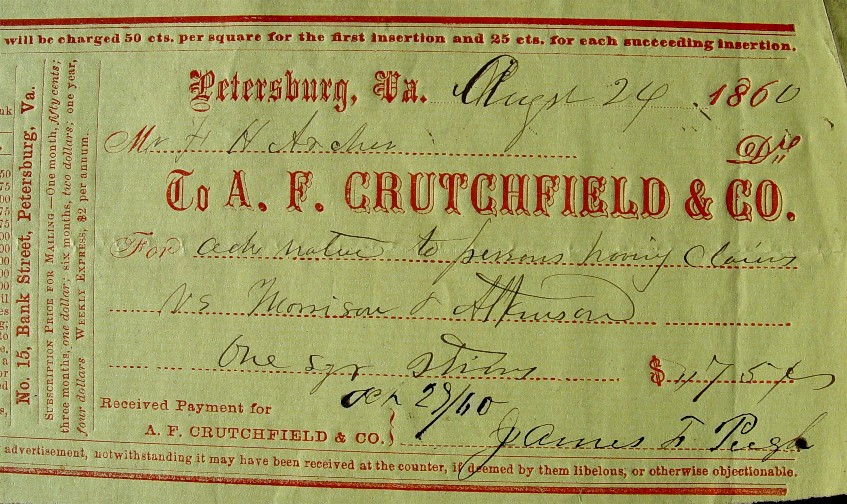 will be charged 50 cts. per square for the first insertion and 25 cts. for each succeeding insertion.
No. 15, Bank Street, Petersburg, Va.
SUBSCRIPTION PRICE FOR MAILING—One month, fifty cents;
three months, one dollar; six months, two dollars; one year,
four dollars WEEKLY EXPRESS, $2 per annum.
Petersburg, Va. Augst 24 1860
Mr F H Archer Dr
To A. F. CRUTCHFIELD & CO.
For adv notice to persons having claims
vs Morrison & Atkinson
One sqr
$
Received Payment for Oct 29/60
A. F. CRUTCHFIELD & CO. James F Pugh
advertisement, notwithstanding it may have been received at the counter, if deemed by them libelous, or otherwise objectionable.